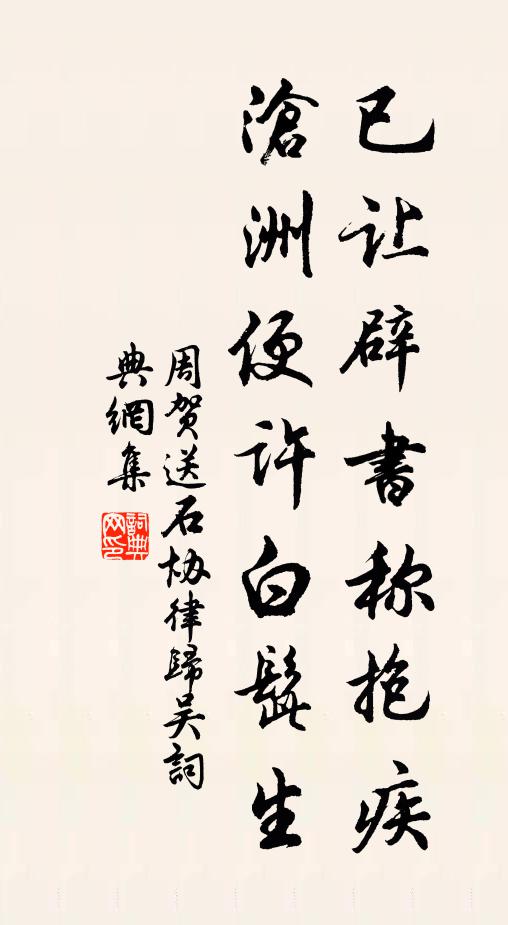 已让辟書称抱疾
滄洲便許白髭生
周贺送石协律歸吴詞
典網集
詞典网印